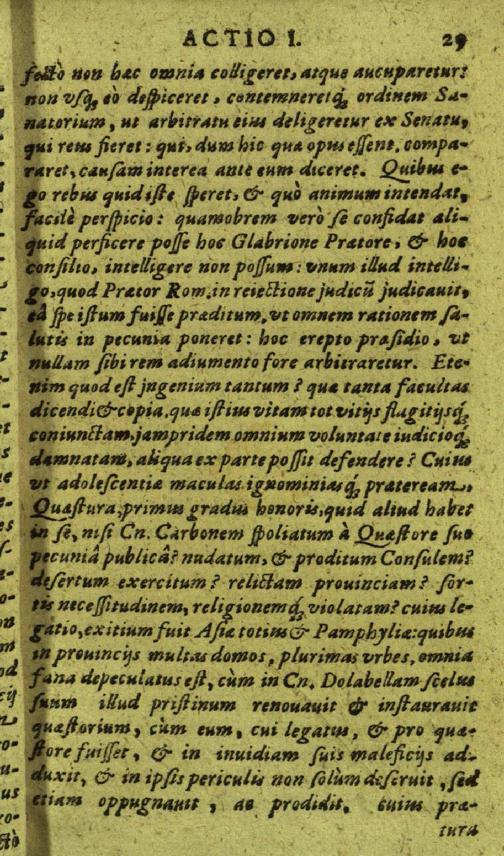 ACTIO I. 29
fectò non hæc omnia colligeret, atque aucuparetur:
non vsq́, eò despiceret, contemneretq́ ordinem Se-
natorium, ut arbitratu eius deligeretur ex Senatu,
qui reus fieret: qui, dum hic quæ opus essent, compa-
raret, causam interea ante eum diceret. Quibus e-
go rebus quid iste speret, & quò animum intendat,
facilè perspicio: quamobrem verò se confidat ali-
quid perficere posse hoc Glabrione Prætore, & hoc
consilio, intelligere non possum: vnum illud intelli-
go, quod Prætor Rom. in reiectione judicũ judicauit,
eâ spe istum fuisse præditum, vt omnem rationem sa-
lutis in pecunia poneret: hoc erepto præsidio, vt
nullam sibi rem adiumento fore arbitraretur. Ete-
nim quod est jngenium tantum? quæ tanta facultas
dicendi & copia, quæ istius vitam tot vitijs flagitijsq́
coniunctam, jampridem omnium voluntate iudicioq́
damnatam, aliqua ex parte possit defendere? Cuius
vt adolescentiæ maculas ignominiasq́ præteream,
Quæstura, primus gradus honoris, quid aliud habet
in se, nisi Cn. Carbonem spoliatum à Quæstore suo
pecuniâ publicâ? nudatum, & proditum Consulem?
desertum exercitum? relictam prouinciam? sor-
tis necessitudinem, religionemq́ violatam? cuius le-
gatio, exitium fuit Asiæ totius & Pamphyliæ: quibus
in prouincijs multas domos, plurimas vrbes, omnia
fana depeculatus est, cùm in Cn. Dolabellam scelus
suum illud pristinum renouauit & instaurauit
quæstorium, cùm eum, cui legatus, & pro quæ-
store fuisset, & in inuidiam suis maleficijs ad-
duxit, & in ipsis periculis non solùm deseruit, sed
etiam oppugnauit, ac prodidit. cuius præ-
tura